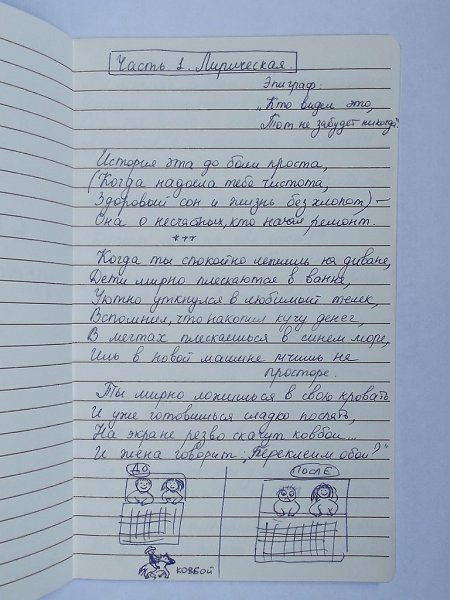 Часть 1. Лирическая.
Эпиграф:
„Кто видел это,
Тот не забудет никогда"
История эта до боли проста,
(Когда надоела тебе чистота,
Здоровый сон и жизнь без хлопот) –
Она о несчастных, кто начал ремонт.
***
Когда ты спокойно лежишь на диване,
Дети мирно плескаются в ванне,
Уютно уткнулся в любимый телек,
Вспомнил, что накопил кучу денег,
В мечтах плескаешься в синем море,
Иль в новой машине мчишь на
просторе.
Ты мирно ложишься в свою кровать
И уже готовишься сладко поспать,
На экране резво скачут ковбои...
И жена говорит: „Переклеим обои?"
ДО
ПОСЛЕ
КОВБОЙ